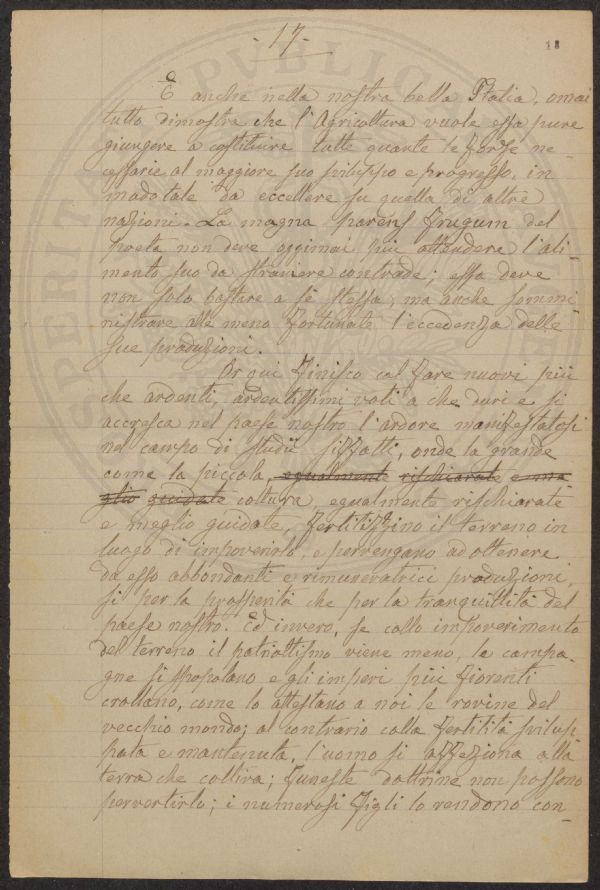 - 17 -
18
È anche nella nostra bella Italia, omai
tutto dimostra che l'Agricoltura vuole essa pure
giungere a costituire tutte quante le forze ne
cessarie al maggiore suo sviluppo e progresso, in
modo tale da eccellere su quella di altre
nazioni. La magna parens frugum del
poeta non deve oggimai più attendere l'ali
mento suo da straniere contrade; essa deve
non solo bastare a sè stessa, ma anche sommi
nistrare alle meno fortunate l'eccedenza delle
sue produzioni.
Or qui finisco col fare nuovi più
che ardenti, ardentissimi voti a che duri e si
accresca nel paese nostro l'ardore manifestatosi
nel campo di studii siffatti, onde la grande
come la piccola, egualmente rischiarate e me
glio guidate coltura, egualmente rischiarate
e meglio guidate, fertilizzino il terreno in
luogo di impoverirlo, e pervengano ad ottenere
da esso abbondanti e rimuneratrici produzioni,
sì per la prosperità che per la tranquillità del
paese nostro. Ed invero, se collo impoverimento
del terreno il patriottismo viene meno, le campa-
gne si spopolano e gli imperi più fiorenti
crollano, come lo attestano a noi le rovine del
vecchio mondo; al contrario colla fertilità svilup
pata e mantenuta, l'uomo si affeziona alla
terra che coltiva; funeste dottrine non possono
pervertirlo; i numerosi figli lo rendono con-